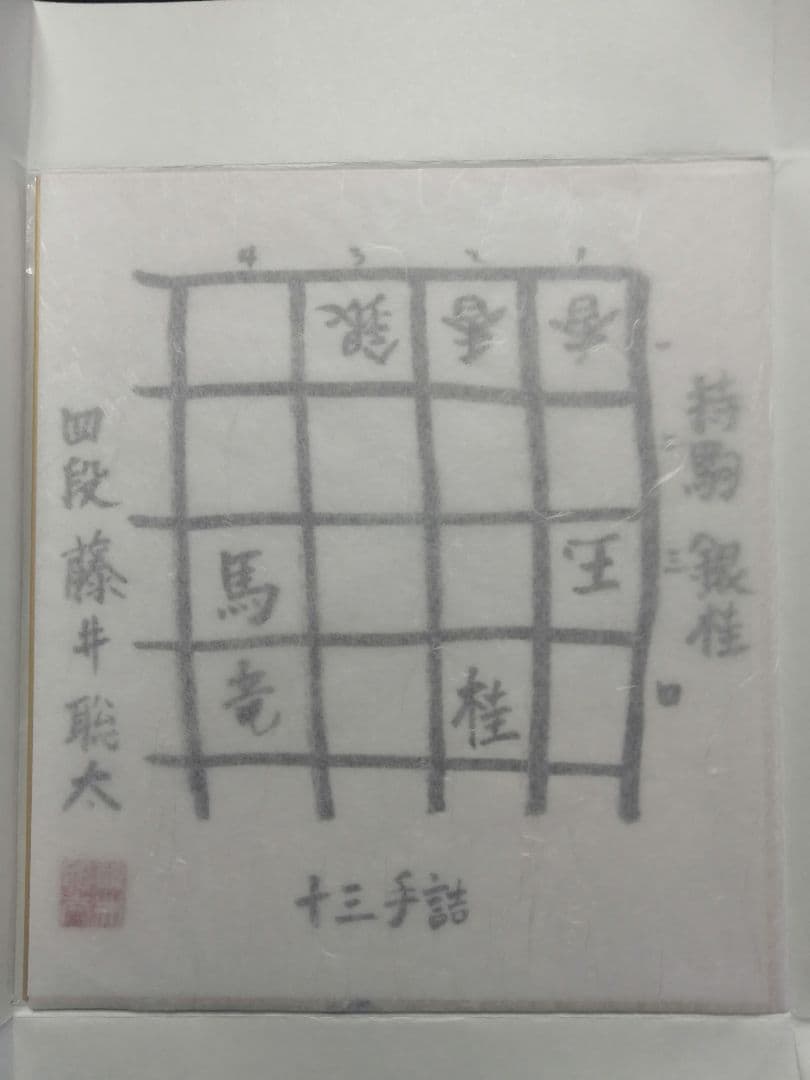 4 3 2 1
銀 香 香
一
持駒 銀桂
二
馬 王
三
竜 桂
四
四段 藤井聡太
十三手詰